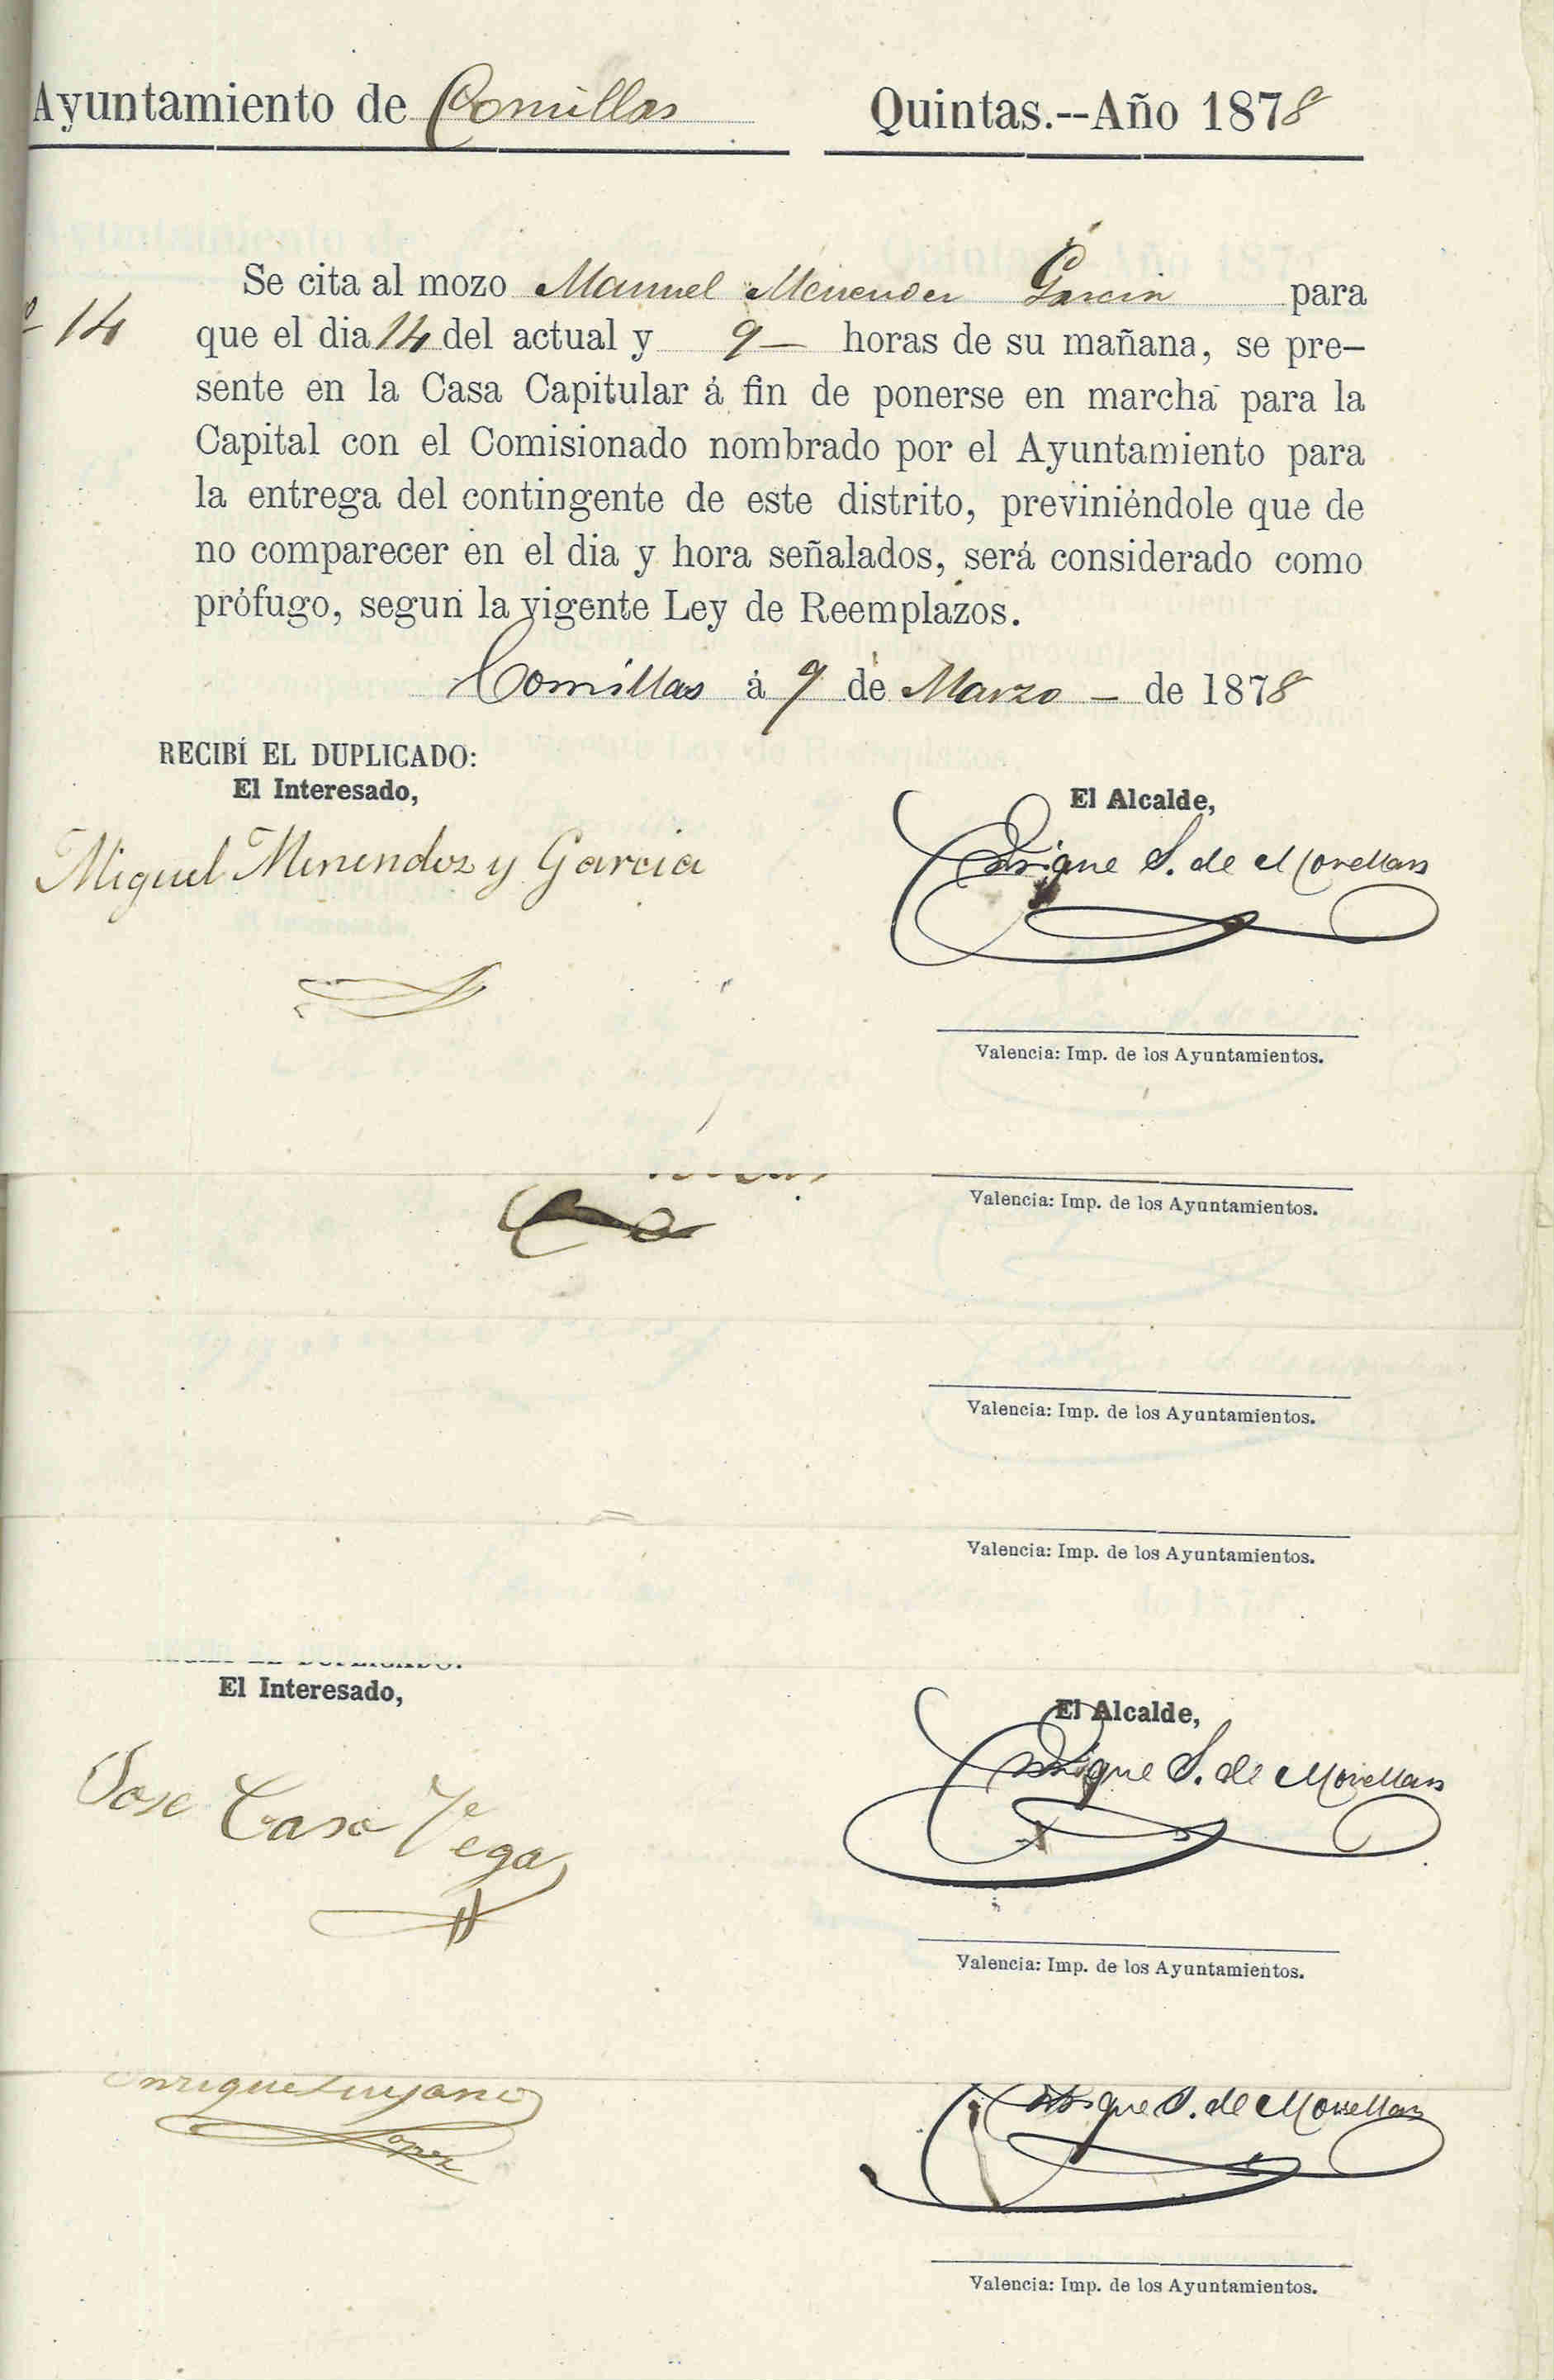 Ayuntamiento de Comillas Quintas.--Año 1878
Se cita al mozo Manuel Menendez Garcia para
14 que el dia 14 del actual y 9- horas de su mañana, se pre-
sente en la Casa Capitular á fin de ponerse en marcha para la
Capital con el Comisionado nombrado por el Ayuntamiento para
la entrega del contingente de este distrito, previniéndole que de
no comparecer en el dia y hora señalados, será considerado como
prófugo, segun la vigente Ley de Reemplazos.
Comillas á 9 de Marzo - de 1878
RECIBÍ EL DUPLICADO:
El Interesado,
El Alcalde,
Miguel Menendez y Garcia
Enrique S. de Movellan
Valencia: Imp. de los Ayuntamientos.
Valencia: Imp. de los Ayuntamientos.
Valencia: Imp. de los Ayuntamientos.
Valencia: Imp. de los Ayuntamientos.
El Interesado,
El Alcalde,
Jose Caso Vega
Enrique S. de Movellan
Valencia: Imp. de los Ayuntamientos.
Enrique Luyano
Lopez
Enrique S. de Movellan
Valencia: Imp. de los Ayuntamientos.